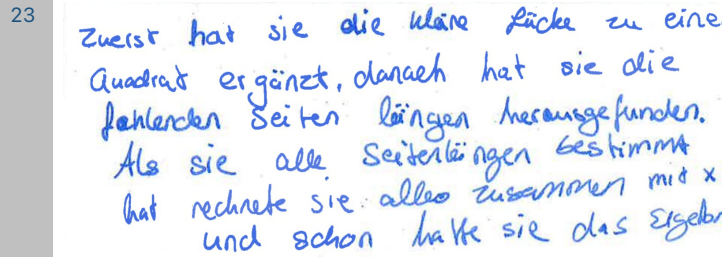 23
Zuerst hat sie die kläine Lücke zu eine
Quadrat ergänzt, danach hat sie die
fehlenden Seiten längen herausgefunden.
Als sie alle Seitenlängen bestimmt
hat rechnete sie alles zusammen mit x
und schon hatte sie das Ergebn